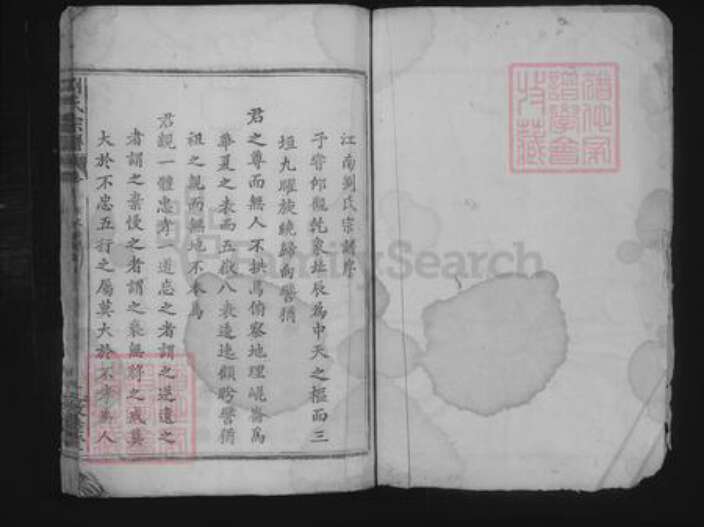 江南劉氏宗譜序
予嘗仰觀乾象北辰為中天之樞而三
垣九曜旋繞歸向譬猶
君之尊而無人不拱焉俯察地理崐崙為
華夏之表而五嶽八表逶迤顧盼譬猶
祖之親而無地不本焉
君親一體忠孝一道悖之者謂之逆遺之
者謂之棄慢之者謂之褻無將之戒莫
大於不忠五行之屬莫大於不孝為人
劉氏宗譜
FamilySearch